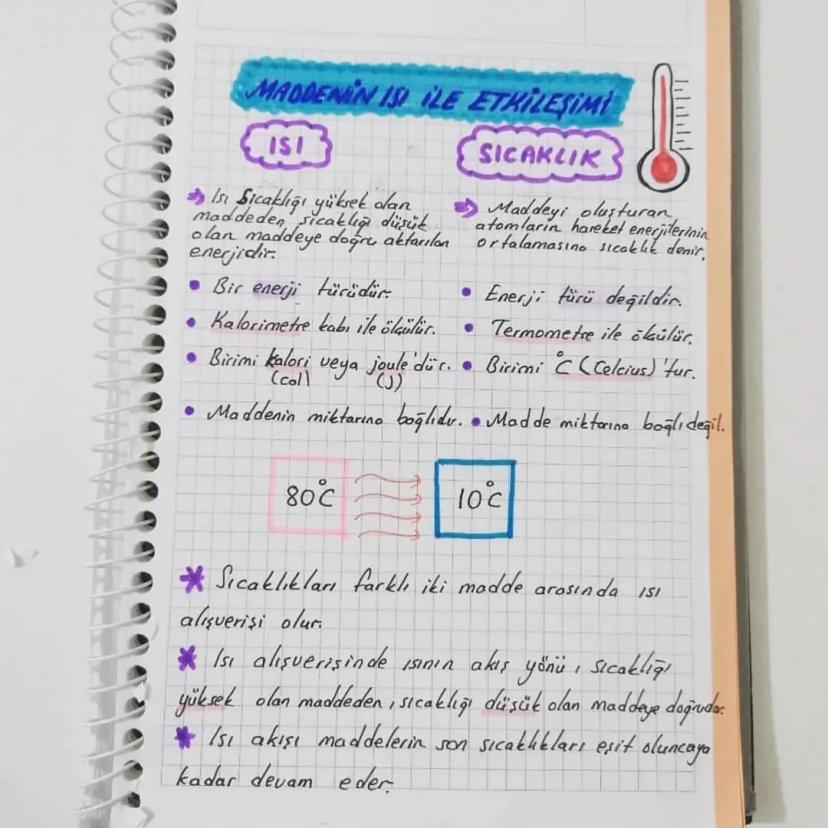 MADDENİN ISI İLE ETKİLEŞİMİ
ISI
SICAKLIK
Isı sıcaklığı yüksek olan
maddeden sıcaklığı düşük
olan maddeye doğru aktarılan
enerjidir.
Bir enerji türüdür.
Kalorimetre kabı ile ölçülür.
Birimi kalori veya joule'dür.
(cal) (J)
Maddenin miktarına bağlıdır.
Maddeyi oluşturan
atomların hareket enerjilerinin
ortalamasına sıcaklık denir.
Enerji türü değildir.
Termometre ile ölçülür.
Birimi °C (Celcius)'tur.
Madde miktarına bağlı değil.
80°C
10°C
Sıcaklıkları farklı iki madde arasında ısı
alışverişi olur.
Isı alışverişinde ısının akış yönü, sıcaklığı
yüksek olan maddeden, sıcaklığı düşük olan maddeye doğrudur.
Isı akışı maddelerin son sıcaklıkları eşit oluncaya
kadar devam eder.